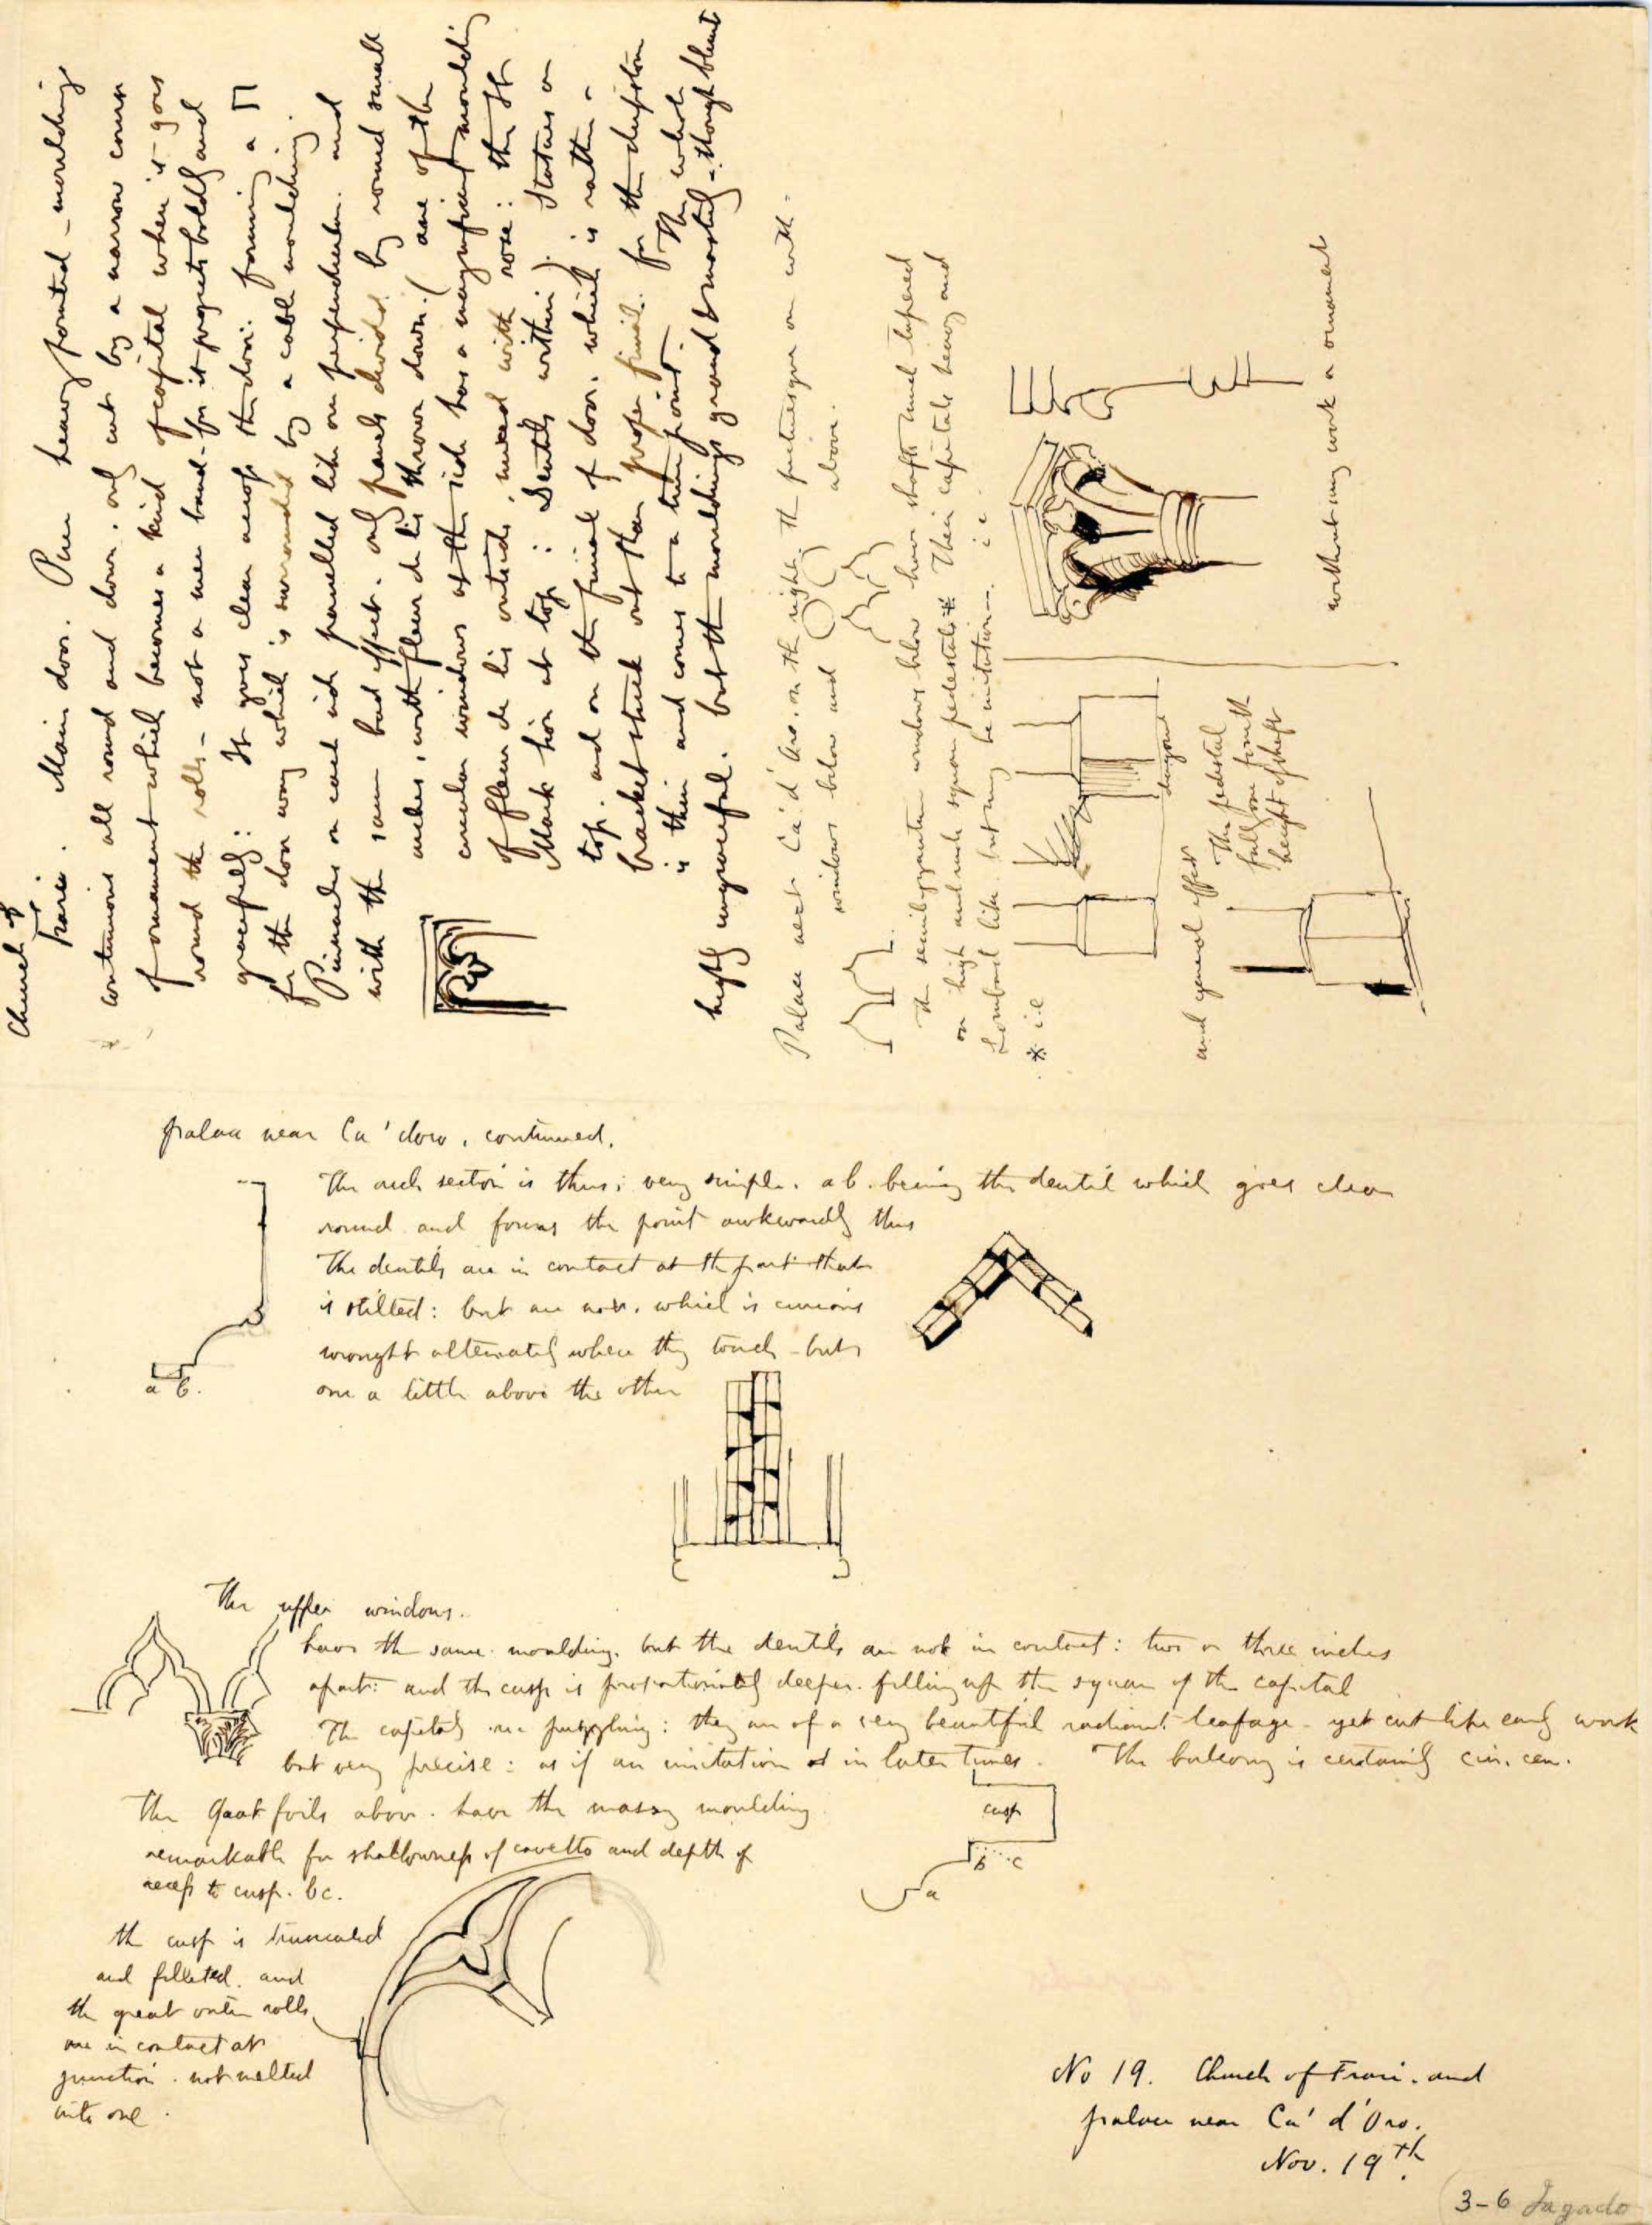 Church of
Frari. Main door. Pure heavy pointed - moulding
continuous all round and down. only cut by a narrow course
of ornament which becomes a kind of capital where it goes
round the rolls - not a mere band - for it projects boldly and
gracefully: It goes clear across the door. forming a
for the door way which is surrounded by a cable moulding.
Pinnacles on each side panelled like our perpendicular. and
with the same bad effect. only panels divided by round small
arches, with fleur de lis thrown down. (one of the
circular windows at the side has a magnificent moulding
of fleur de lis outside, mixed with rose: then St
Mark lion at top: Dentils within). Statues on
top. and on the finial of door. which is rather -
bracket stuck out than proper finial. for the
is thin and comes to a point. The whole
highly ungraceful. but the mouldings grand & masterly - though blunt
Palace next Ca' d' Oro. on the right. The picturesque one with -
windows below and above.
The semibyzantine windows below have shafts much tapered
on high and wide square pedestals * Their capitals heavy and
Lombard like but may be imitation. i e
* i e
designs
without any work or ornament
and general effect
The pedestal
full one fourth
height of shaft
palace near Ca' doro, continued.
The arch section is thus; very simple. a b. being the dentil which goes clear
round and forms the point awkwardly thus
The dentils are in contact at the part that
is stilted: but are not. which is curious
wrought alternately where they touch - but
one a little above the other
a b.
The upper windows.
have the same moulding. but the dentils are not in contact: two or three inches
apart: and the cusp is proportionately deeper. filling up the square of the capital
The capitals are puzzling: they are of a very beautiful radiant leafage - yet cut like early work
but very precise: as if an imitation in later times. The balcony is certainly cin. cen.
The Quatrefoils above. have the massy moulding
remarkable for shallowness of cavetto and depth of
recess to cusp. bc.
cusp
b c
a
the cusp is truncated
and filleted. and
the great outer rolls
are in contact at
junction. not melted
into one.
No 19. Church of Frari. and
palace near Ca' d'Oro.
Nov. 19th.
3-6